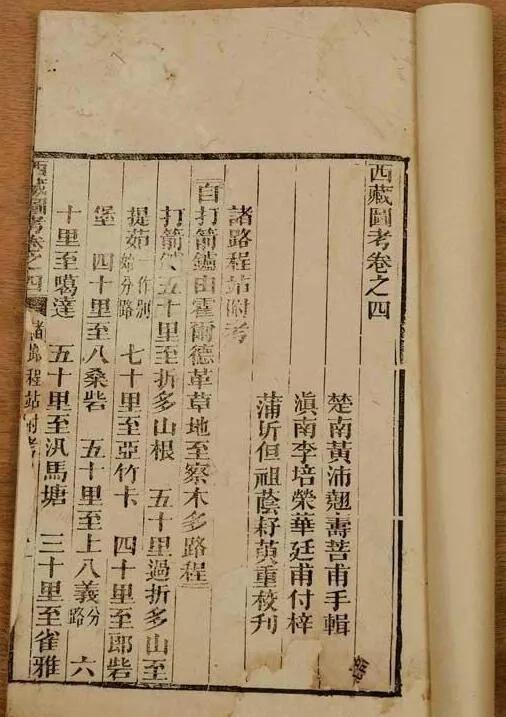 西藏圖考卷之四
楚南黃沛翹壽菩甫手輯
滇南李培榮華廷甫付梓
蒲圻但祖蔭耔荑重校刊
諸路程站附考
自打箭鑪由霍爾德革草地至察木多路程
打箭鑪五十里至折多山根 五十里過折多山至
提茹一作別始分路 七十里至亞竹卡 四十里至郎砦
堡 四十里至八桑砦 五十里至上八義分路 六
十里至噶達 五十里至汎馬塘 三十里至雀雅
西藏圖考卷之四 諸路程站附考